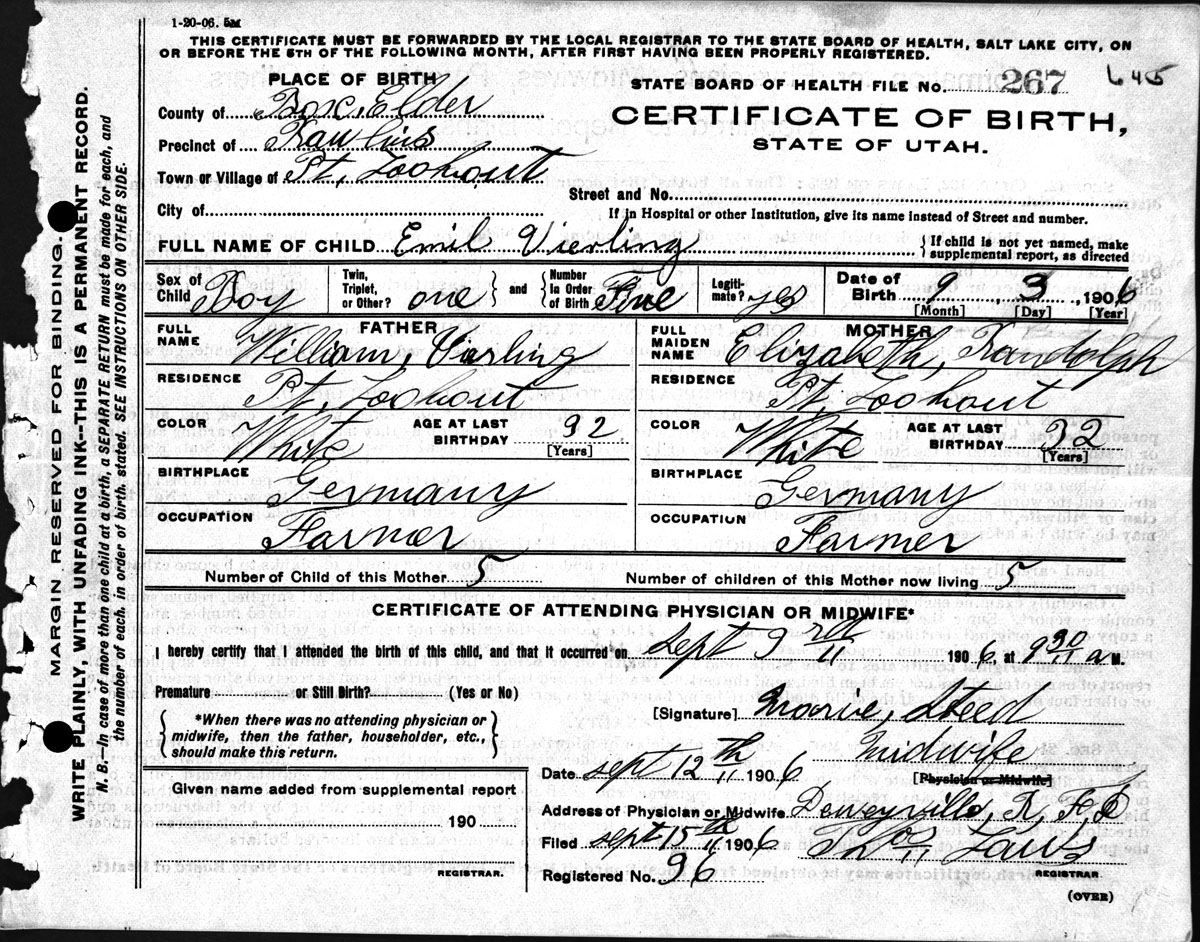 1-20-06. 5M
THIS CERTIFICATE MUST BE FORWARDED BY THE LOCAL REGISTRAR TO THE STATE BOARD OF HEALTH, SALT LAKE CITY, ON
OR BEFORE THE 5TH OF THE FOLLOWING MONTH, AFTER FIRST HAVING BEEN PROPERLY REGISTERED.
PLACE OF BIRTH
STATE BOARD OF HEALTH FILE No. 267 645
County of Box Elder
CERTIFICATE OF BIRTH,
Precinct of Rawlins
STATE OF UTAH.
Town or Village of Pt, Lookout
Street and No.
City of
If in Hospital or other Institution, give its name instead of Street and number.
FULL NAME OF CHILD Emil Vierling
If child is not yet named, make
supplemental report, as directed
Sex of Child Boy
Twin, Triplet, or Other? one
and
Number In Order of Birth Five
Legitimate? yes
Date of Birth 9 3, 1906
[Month] [Day] [Year]
FATHER
FULL NAME William, Vierling
RESIDENCE Pt, Lookout
COLOR White
AGE AT LAST BIRTHDAY 32
[Years]
BIRTHPLACE Germany
OCCUPATION Farmer
MOTHER
FULL MAIDEN NAME Elizabeth, Randolph
RESIDENCE Pt, Lookout
COLOR White
AGE AT LAST BIRTHDAY 22
[Years]
BIRTHPLACE Germany
OCCUPATION Farmer
Number of Child of this Mother 5
Number of children of this Mother now living 5
CERTIFICATE OF ATTENDING PHYSICIAN OR MIDWIFE*
I hereby certify that I attended the birth of this child, and that it occurred on Sept 3rd 1906 at 9 30 a M.
Premature or Still Birth? (Yes or No)
*When there was no attending physician or
midwife, then the father, householder, etc.,
should make this return.
[Signature] Marie, Steed
Midwife
[Physician or Midwife]
Date sept 12th 1906
Given name added from supplemental report
190
REGISTRAR.
Address of Physician or Midwife Deweyville, R, F, D
Filed sept 15th 1906
Thos Laws
REGISTRAR
Registered No. 96
(OVER)
MARGIN RESERVED FOR BINDING.
WRITE PLAINLY, WITH UNFADING INK--THIS IS A PERMANENT RECORD.
N. B.--In case of more than one child at a birth, a SEPARATE RETURN must be made for each, and
the number of each, in order of birth, stated. SEE INSTRUCTIONS ON OTHER SIDE.